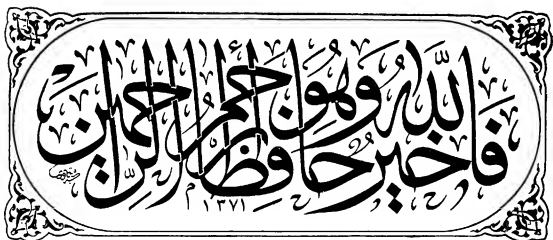 فالله خير حافظا وهو أرحم الراحمين
١٣٧١